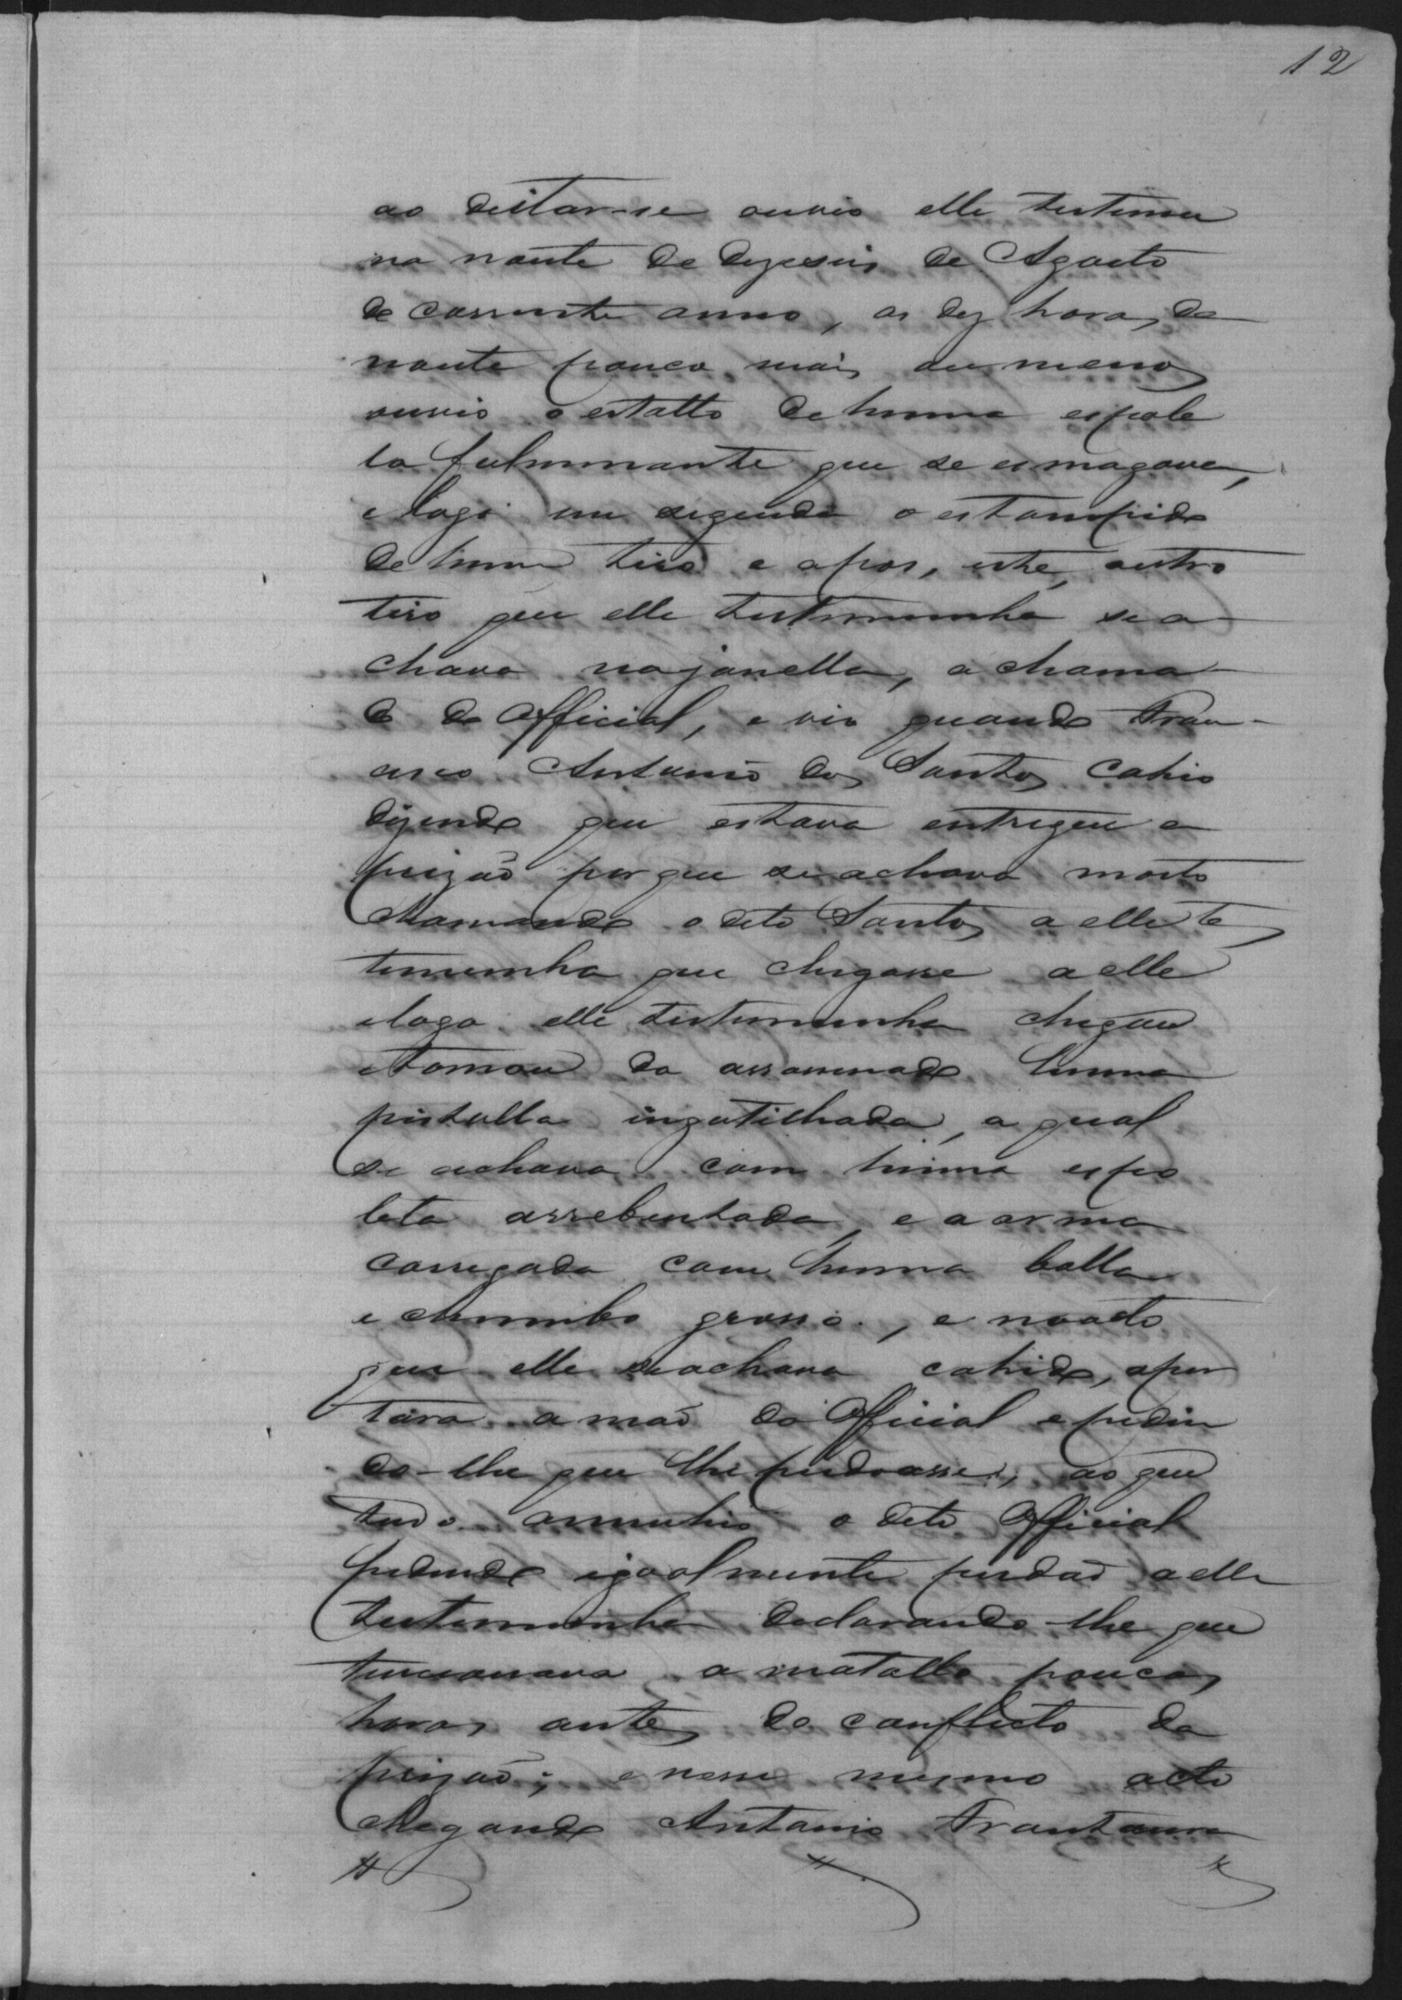 12
ao deitar-se ouvio elle testemu
na noute de dezeseis de Agosto
do corrente anno, as dez horas da
noute pouco mais ou menos
ouvio o estallo de huma espole
ta fulminante que se esmagava,
e logo em seguida o estampido
de hum tiro e apos, este, outro
tiro que elle testemunha se a
chava na janella, a chama
do do Official, e vio quando Fran
cisco Antonio dos Santos cahio
dizendo que estava entregue a
prizaõ porque se achava morto
chamando o dito Santos a elle tes
temunha que chegasse a elle
e logo elle testemunha chegou
e tomou do assassinado huma
pistolla ingatilhada, a qual
se achava com huma espo
leta arrebentada, e a arma
carregada com huma balla
e chumbo grosso, e no acto
que elle se achava cahido, aper
tara a maõ do Official e pedin
do-lhe que lhe perdoasse, ao que
tudo annuhio o dito Official
pedindo igualmente perdaõ a elle
testemunha declarando-lhe que
tencionava a matallo poucas
horas antes do conflicto da
prizaõ; e nesse mesmo acto
chegando Antonio